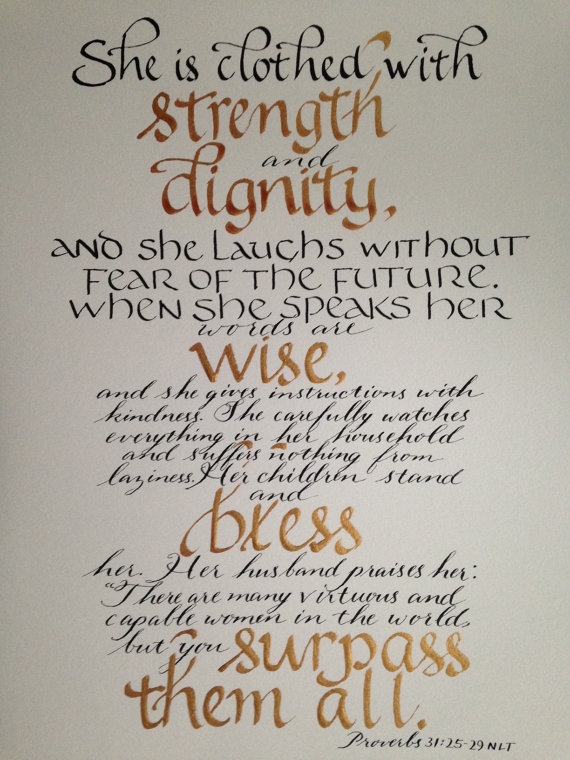 She is clothed with
strength
and
dignity,
and she laughs without
fear of the future.
when she speaks her
words are
wise,
and she gives instructions with
kindness. She carefully watches
everything in her household
and suffers nothing from
laziness. Her children stand
and
bless
her. Her husband praises her:
"There are many virtuous and
capable women in the world,
but you surpass
them all.
Proverbs 31:25-29 NLT